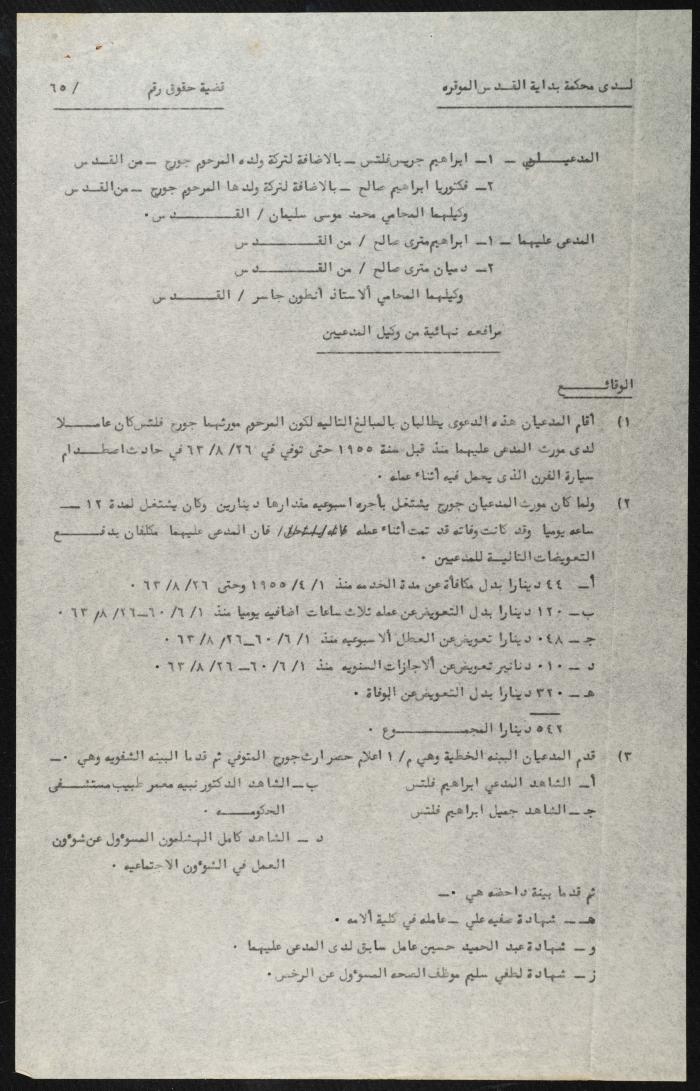 لــدى محكمة بداية القــد س الموقره
قضية حقوق رقم / ٦٥
المدعيــين ــ ١ــ ابراهيم جريس فلتس ــ بالاضافة لتركة ولده المرحوم جورج ــ من القد س
٢ــ فكتوريا ابراهيم صالح ــ بالاضافة لتركة ولدها المرحوم جورج ــ من القد س
وكيلهما المحامي محمد موسى سليمان / القــــد س ٠
المدعى عليهما ــ ١ــ ابراهيم متري صالح / من القــــد س
٢ــ دميان متري صالح / من القــــد س
وكيلهما المحامي ألاستاذ أنطون جاسر / القــــد س
مرافعه نهائية من وكيل المدعيين
الوقائــــع
١) أقام المدعيان هذه الدعوى يطالبان بالمبالغ التاليه لكون المرحوم مورثهما جورج فلتس كان عامــلا
لدى مورث المدعى عليهما منذ قبل سنة ١٩٥٥ حتى توفي في ٢٦/ ٨/ ٦٣ في حادث اصطــدام
سيارة الفرن الذي يعمل فيه أثناء عمله ٠
٢) ولما كان مورث المدعيان جورج يشتغل بأجره اسبوعيه مقدارها دينارين وكان يشتغل لمدة ١٢ ــ
ساعه يوميا وقد كانت وفاته قد تمت أثناء عمله / فان المدعى عليهما مكلفان بدفــــع
التعويضات التالية للمدعيين ٠
أ ــ ٤٤ دينارا بدل مكافأة عن مدة الخدمه منذ ١/ ٤/ ١٩٥٥ وحتى ٢٦/ ٨/ ٦٣ ٠
ب ــ ١٢٠ دينارا بدل التعويض عن عمله ثلاث ساعات اضافيه يوميا منذ ١/ ٦/ ٦٠ــ ٢٦/ ٨/ ٦٣ ٠
جـ ــ ٠٤٨ دينارا تعويض عن العطل ألاسبوعيه منذ ١/ ٦/ ٦٠ــ ٢٦/ ٨/ ٦٣ ٠
د ــ ٠١٠ دنانير تعويض عن ألاجازات السنويه منذ ١/ ٦/ ٦٠ــ ٢٦/ ٨/ ٦٣ ٠
هـ ــ ٣٢٠ دينارا بدل التعويض عن الوفاة ٠
٥٤٢ دينارا المجمــــوع ٠
٣) قدم المدعيان البينه الخطية وهي م/ ١ اعلام حصر ارث جورج المتوفي ثم قدما البينه الشفويه وهي ٠ــ
أ ــ الشاهد المدعي ابراهيم فلتس ب ــ الشاهد الدكتور نبيه معمر طبيب مستشــفى
جـ ــ الشاهد جميل ابراهيم فلتس الحكومــــه ٠
د ــ الشاهد كامل الهشلمون المسوءول عن شوءون
العمل في الشوءون الاجتماعيه ٠
ثم قدما بينة داحضه هي ٠ــ
هـ ــ شهادة صفيه علي ــ عامله في كلية ألامه ٠
و ــ شهادة عبد الحميد حسين عامل سابق لدى المدعى عليهما ٠
ز ــ شهادة لطفي سليم موظف الصحه المسوءول عن الرخص ٠